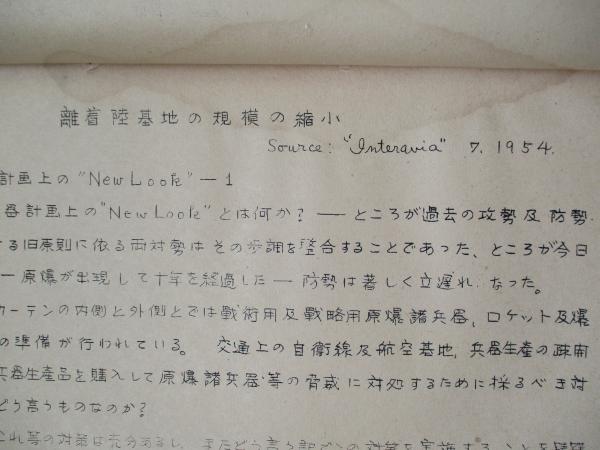 離着陸基地の規模の縮小
Source: "Interavia" 7. 1954.
計画上の"New Look" — 1
器計画上の"New Look"とは何か? — ところが過去の攻勢及防勢
する旧原則に依る両対勢はその歩調を整合することであった、ところが今日
— 原爆が出現して十年を経過した — 防勢は著しく立遅れになった。
カーテンの内側と外側とでは戦術用及戦略用原爆諸兵器, ロケット及爆
の準備が行われている。 交通上の自衛線及航空基地, 兵器生産の疎開
兵器生産品を購入して原爆諸兵器等の脅威に対処するために採るべき対
どう言うものなのか?
これ等の対策は充分あるし、またどう言う